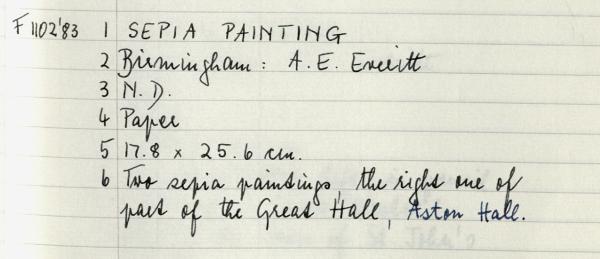 F1102'83 1 SEPIA PAINTING
2 Birmingham: A. E. Everitt
3 N.D.
4 Paper
5 17.8 x 25.6 cm.
6 Two sepia paintings, the right one of
part of the Great Hall, Aston Hall.